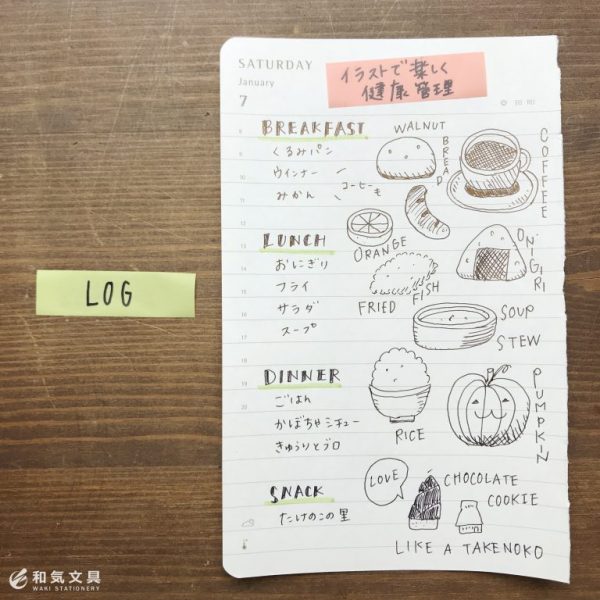 SATURDAY
January
7
イラストで楽しく
健康管理
BREAKFAST
くるみパン
ウインナー
みかん
コーヒーも
WALNUT
BREAD
COFFEE
ORANGE
LUNCH
おにぎり
フライ
サラダ
スープ
ONIGIRI
FRIED FISH
SOUP
STEW
LOG
DINNER
ごはん
かぼちゃシチュー
きゅうりとブロ
RICE
PUMPKIN
SNACK
たけのこの里
LOVE
CHOCOLATE
COOKIE
LIKE A TAKENOKO
和気文具
WAKI STATIONERY